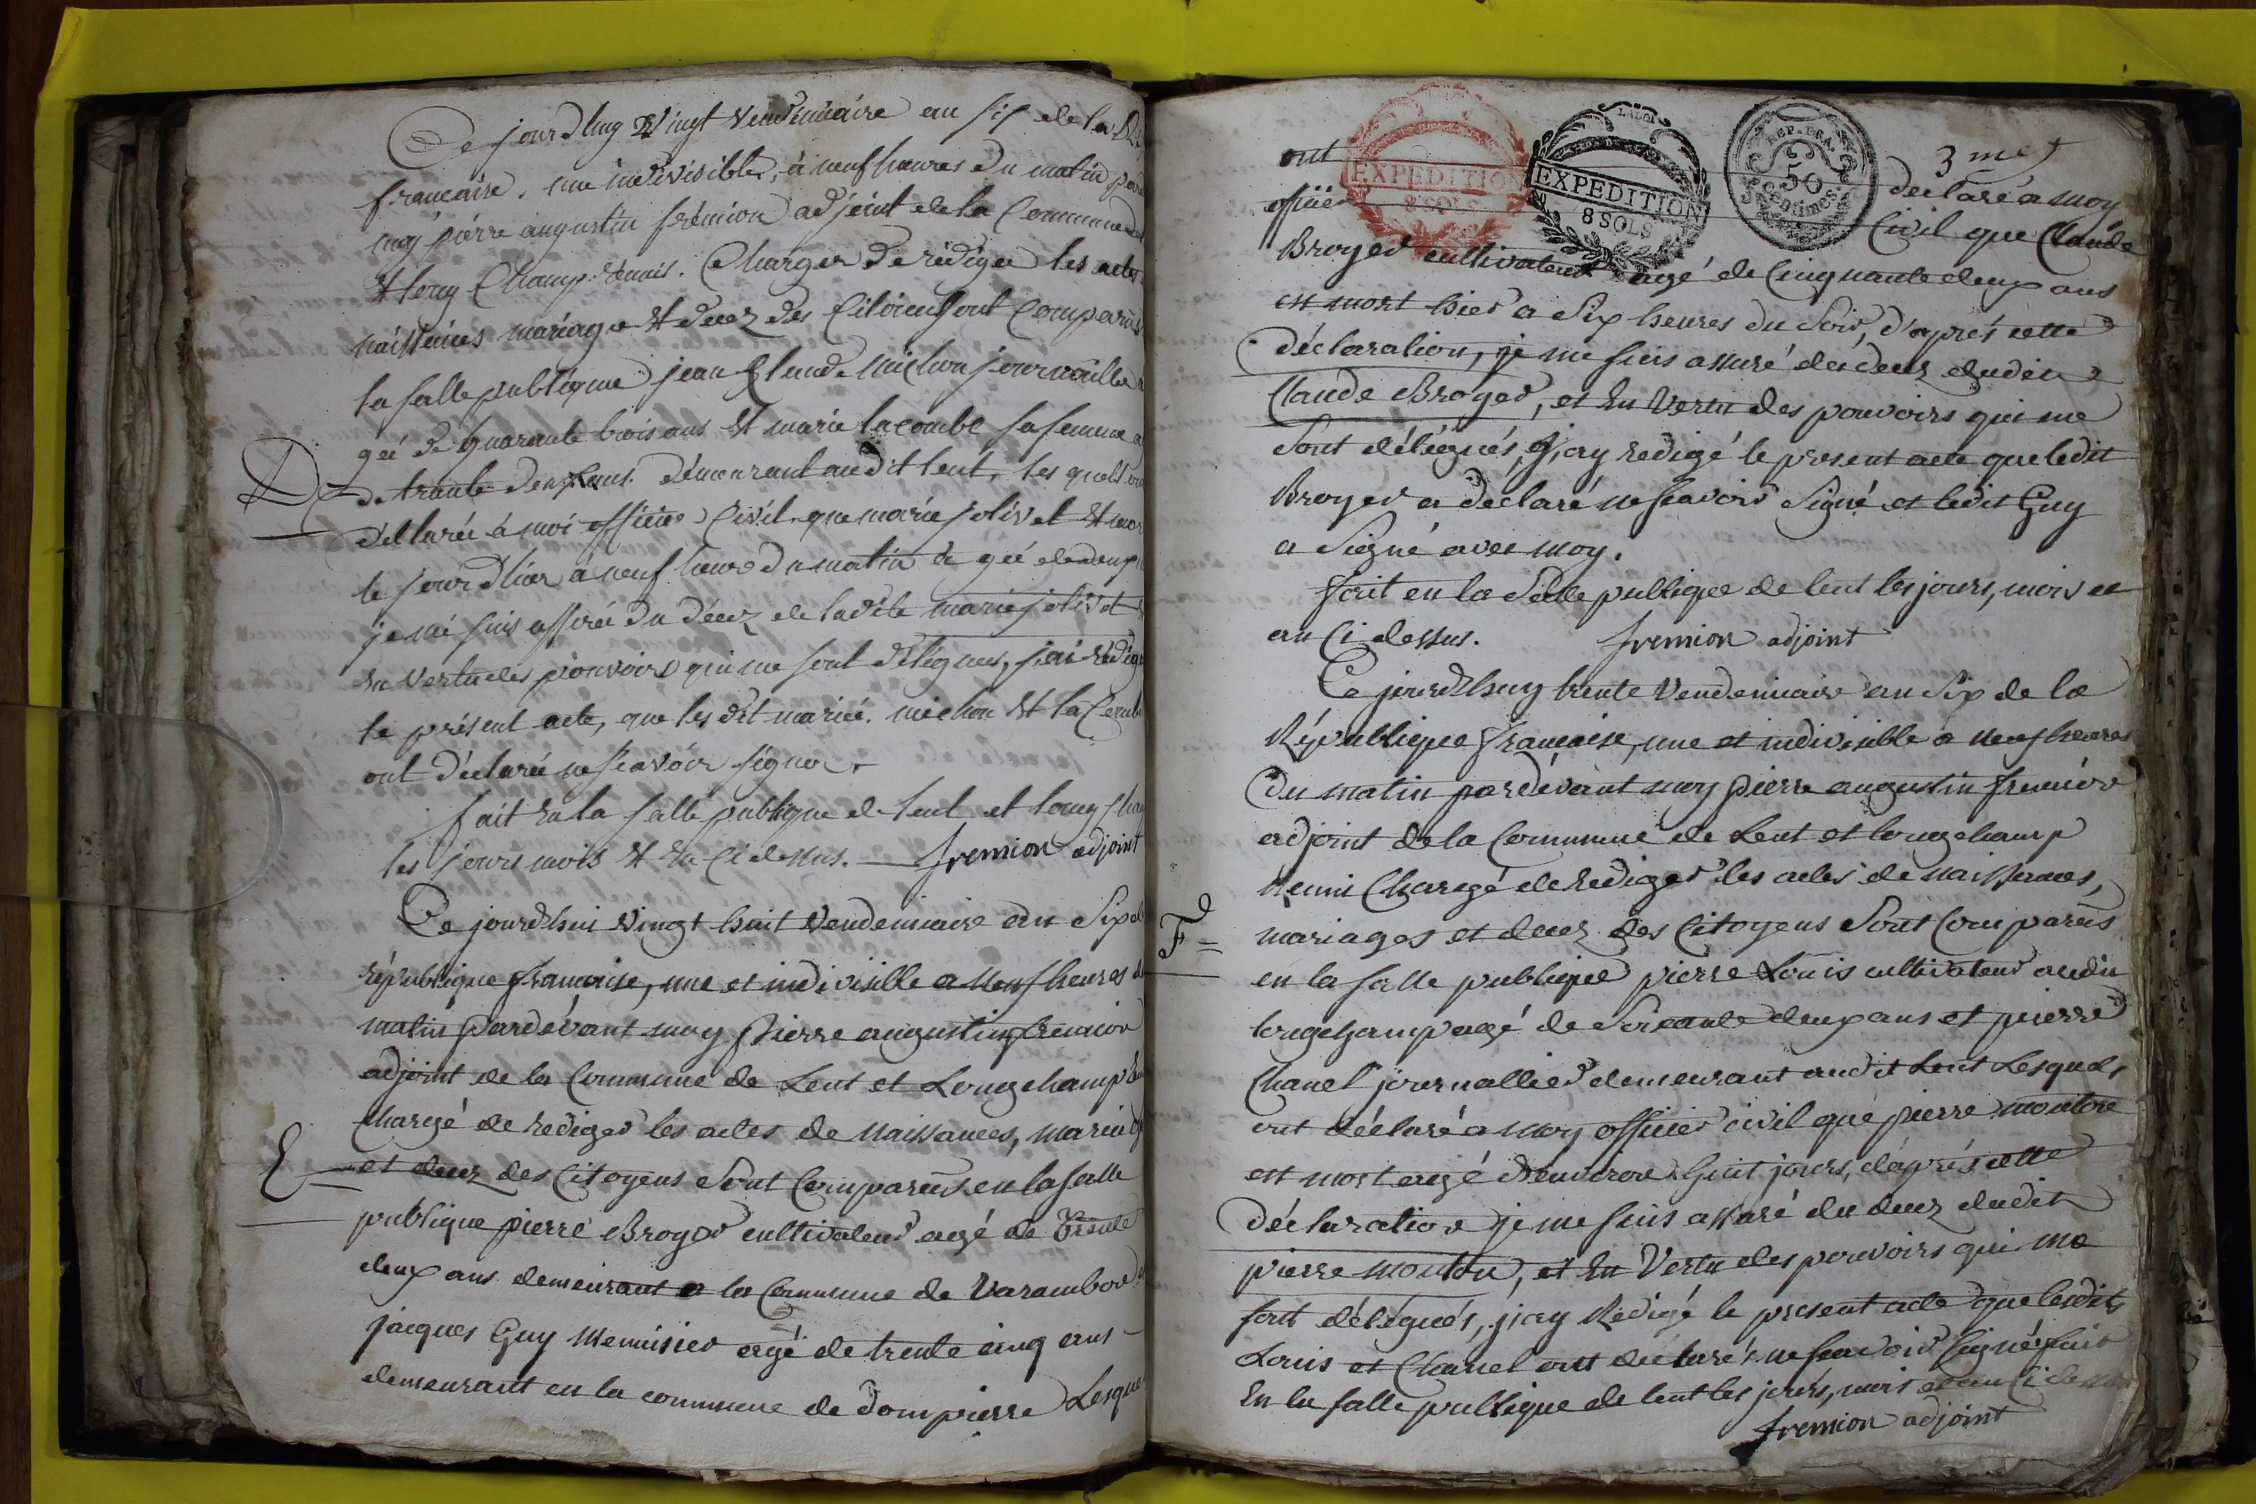 Ce jourdhuy Vingt vendemiaire an six de la
française. une indivisible, à neuf heures du matin
moy pierre augustin frémion adjoint de la Commune
et long Champ réunis. Charger de rédiger les actes
naissances mariage et decez des Citoiens ont comparus
la salle publique jean Claude Michon journaillié
gé de quarante trois ans et marie lacombe sa femme
D
de trante deux ans. démeurant audit lent, les quels
déclarée à moi officier Civil que marie jolivet et mor
le jour dhier a neuf heure du matin a gée de deux
je mé suis assurée du décez de ladite marie jolivet
en vertu des pouvoirs qui me sont délégues, j'ai rédigé
le présent acte, que les dit mariée. michon et la Combe
ont déclarée ne scavoir signer
fait en la salle publique de lent et long cha
les jours mois et an ci dessus. fremion adjoint
Ce jourdhui Vingt huit Vendemiaire an Six de
république française, une et indivisible a neuf heures du
matin pardevant moy Pierre augustin fremion
adjoint de la Commune de Lent et Longchamp
Chargé de rediger les actes de naissances, mariages
E
et decez des Citoyens Sont Comparus en la salle
publique pierre Broyer cultivateur agé de trente
deux ans demeurant a la Commune de Varambon
jacques Guy Menuisier agé de trente cinq ans
demeurant en la commune de dompierre Lesquel
LA LOI
REP. FRA.
50
Centimes
EXPEDITION
8 SOLS
EXPEDITION
8 SOLS
3me
ont declaré a moy
officier Civil que Claude
Broyer cultivateur agé de Cinquante deux ans
est mort hier a Six heures du Soir, d'après cette
déclaration, je me suis assuré du decez dudit
Claude Broyer, et En Vertu des pouvoirs qui me
Sont délégués, j'ay redigé le present acte que ledit
Broyer a déclaré ne scavoir Signé et ledit Guy
a Signé avec moy.
fait en la Salle publique de lent les jours, mois et
an Ci dessus. fremion adjoint
Ce jourdhuy trente Vendemiaire an Six de la
République française, une et indivisible a neuf heures
Du matin pardévant moy pierre augustin fremion
adjoint de la Commune de Lent et longchamp
reuni Chargé de rediger les actes de naissances,
F
mariages et decez des Citoyens Sont Comparus
en la salle publique pierre Louis cultivateur audit
longchamp agé de Soixante deux ans et pierre
Chanel journallier demeurant audit Lent Lesquels
ont déclaré a moy officier civil que pierre mouton
est mort agé d'environ huit jours, d'après cette
Déclaration je me suis assuré du decez dudit
pierre mouton, et En Vertu des pouvoirs qui me
sont délégués, j'ay Redigé le present acte que lesdits
Louis et Chanel ont declaré ne scavoir signé fait
En la salle publique de lent les jours, mois et an Ci dessus
fremion adjoint